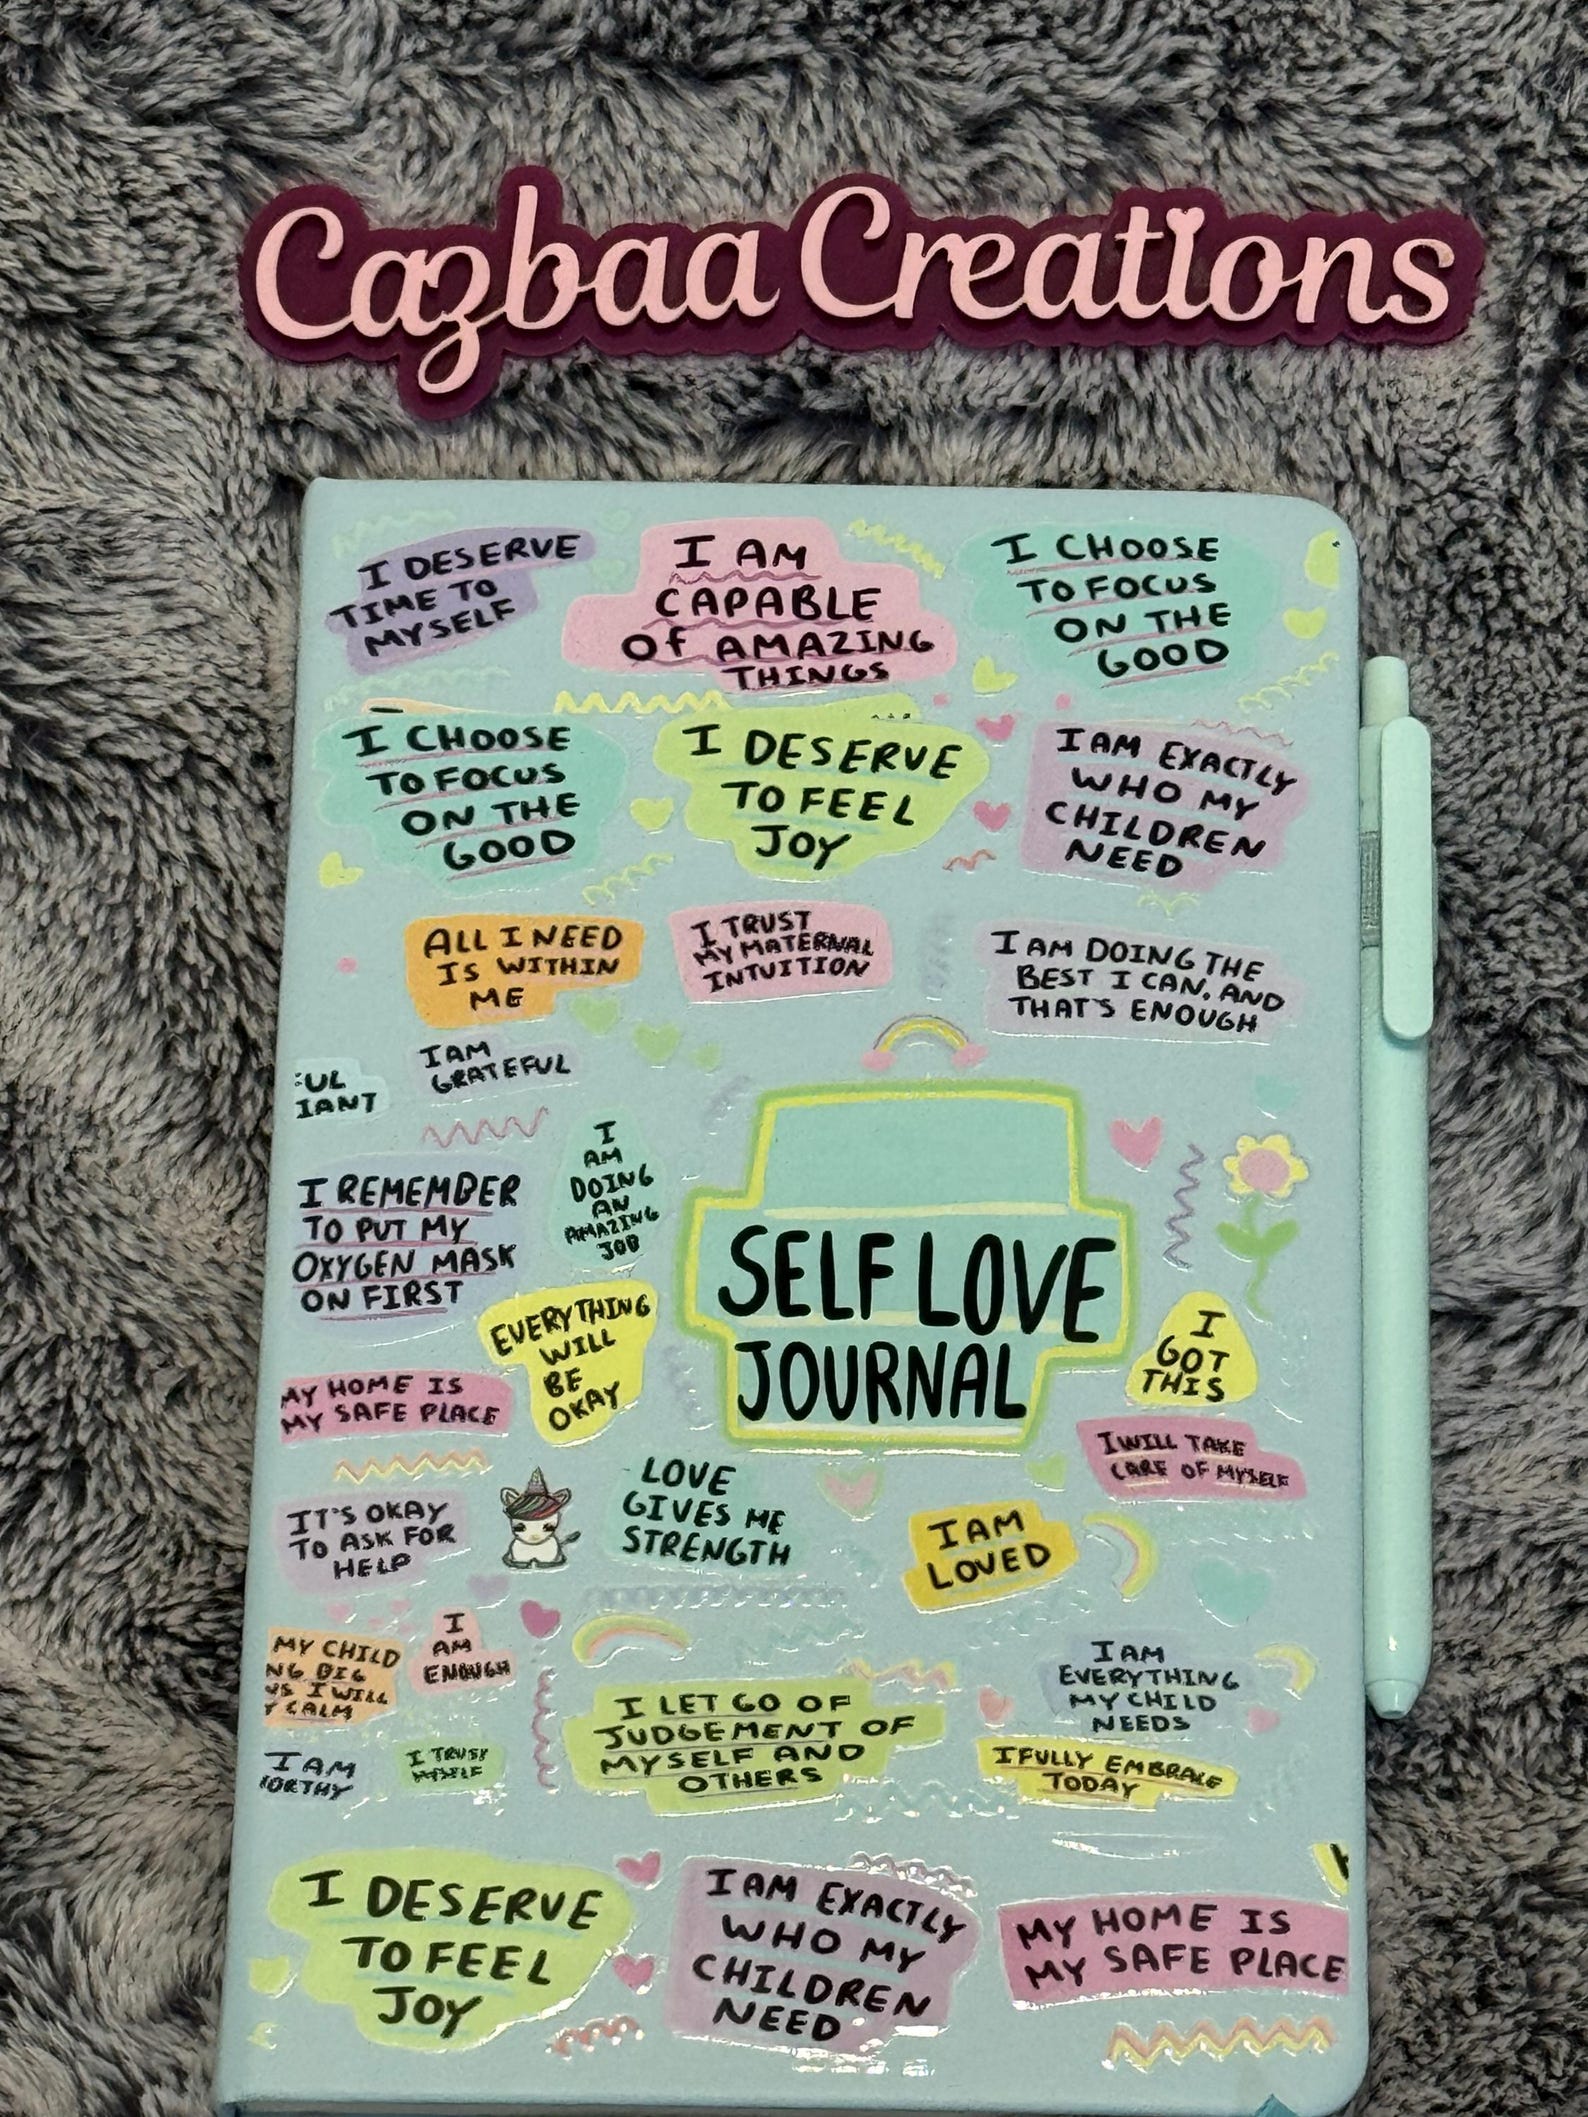 Cazbaa Creations
I DESERVE
TIME TO
MYSELF
I AM
CAPABLE
Of AMAZING
THINGS
I CHOOSE
TO FOCUS
ON THE
GOOD
I CHOOSE
TO FOCUS
ON THE
GOOD
I DESERVE
TO FEEL
JOY
I AM EXACTLY
WHO MY
CHILDREN
NEED
ALL I NEED
IS WITHIN
ME
I TRUST
MY MATERNAL
INTUITION
I AM DOING THE
BEST I CAN, AND
THAT'S ENOUGH
UL
IANT
I AM
GRATEFUL
I REMEMBER
TO PUT MY
OXYGEN MASK
ON FIRST
I
AM
DOING
AN
AMAZING
JOB
SELF LOVE
JOURNAL
EVERYTHING
WILL
BE
OKAY
I
GOT
THIS
MY HOME IS
MY SAFE PLACE
I WILL TAKE
CARE OF MYSELF
IT'S OKAY
TO ASK FOR
HELP
LOVE
GIVES ME
STRENGTH
I AM
LOVED
MY CHILD
NG BIG
NS I WILL
Y CALM
I
AM
ENOUGH
I LET GO OF
JUDGEMENT OF
MYSELF AND
OTHERS
I AM
EVERYTHING
MY CHILD
NEEDS
I AM
ORTHY
I TRUST
MYSELF
I FULLY EMBRACE
TODAY
I DESERVE
TO FEEL
JOY
I AM EXACTLY
WHO MY
CHILDREN
NEED
MY HOME IS
MY SAFE PLACE